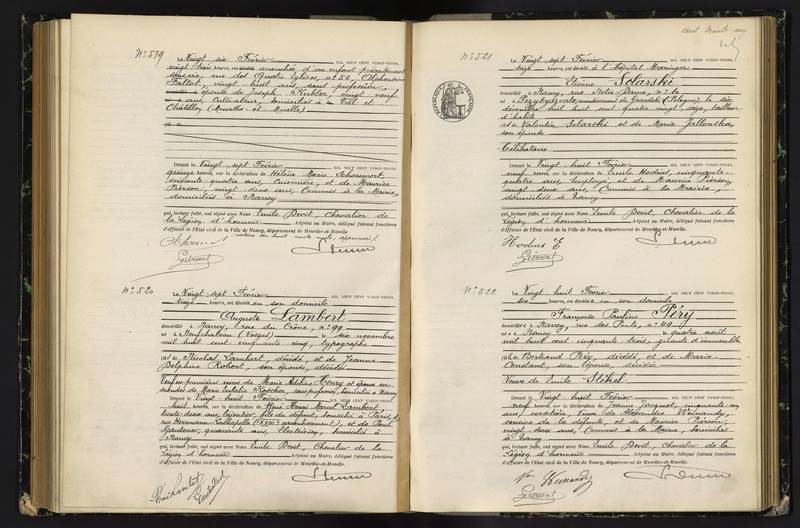 cent trente-un
N° 519
Le Vingt six Février MIL NEUF CENT VINGT-TROIS,
vingt trois heures, est accouchée d'un enfant présentement
sans vie, rue des Quatre Eglises, n° 56, Alphonsine
vingt huit ans, sans profession,
épouse de Joseph Richter, vingt neuf
ans, cultivateur, domiciliés à Vill et
Châtillon (Meurthe-et-Moselle)
Dressé le Vingt sept Février MIL NEUF CENT VINGT-TROIS,
quinze heures, sur la déclaration de Hélène Marie
soixante quatre ans, et de Maurice
Pierson, vingt deux ans, Commis à la Mairie,
domiciliés à Nancy
qui, lecture faite, ont signé avec Nous Emile Devit, Chevalier de
la Légion d'honneur Adjoint au Maire, délégué faisant fonctions
d'officier de l'Etat civil de la Ville de Nancy, département de Meurthe-et-Moselle.
N° 520
Le Vingt sept Février MIL NEUF CENT VINGT-TROIS,
treize heures, est décédé en son domicile
Auguste Lambert
domicilié à Nancy, rue du Crône, n° 99
né à Neufchâteau (Vosges) le six novembre
mil huit cent cinquante cinq, typographe
fils de Nicolas Lambert, décédé, et de Jeanne
Delphine son épouse, décédée
Veuf en premières noces de Marie Adeline Henry et époux en
secondes de Marie sans profession, domiciliée à Nancy
Dressé le Vingt huit Février MIL NEUF CENT VINGT-TROIS,
huit heures, sur la déclaration de René Henri Marcel Lambert,
trente ans, fils du défunt, domicilié à Paris,
rue Hermann Lachapelle (XVIIIe arrondissement), et de Paul
quarante ans, Electricien, domicilié à
Nancy
qui, lecture faite, ont signé avec Nous Emile Devit, Chevalier de la
Légion d'honneur Adjoint au Maire, délégué faisant fonctions
d'officier de l'Etat civil de la Ville de Nancy, département de Meurthe-et-Moselle.
N° 521
Le Vingt sept Février MIL NEUF CENT VINGT-TROIS,
seize heures, est décédé à l'hôpital Maringer
Etienne Solarski
domicilié à Nancy, rue Notre Dame, n°
né à (Pologne), le six
décembre mil huit cent quatre vingt seize, tailleur
d'habits
fils de Valentin Solarski et de Maria Jallonska,
son épouse
Célibataire
Dressé le Vingt huit Février MIL NEUF CENT VINGT-TROIS,
neuf heures, sur la déclaration de Emile Hodius, cinquante-
quatre ans, Employé, et de Maurice Pierson,
vingt deux ans, Commis à la Mairie,
domiciliés à Nancy
qui, lecture faite, ont signé avec Nous Emile Devit, Chevalier de la
Légion d'honneur Adjoint au Maire, délégué faisant fonctions
d'officier de l'Etat civil de la Ville de Nancy, département de Meurthe-et-Moselle.
Hodius E
N° 522
Le Vingt huit Février MIL NEUF CENT VINGT-TROIS,
six heures, est décédée en son domicile
Françoise Pauline Péry
domiciliée à Nancy, rue des Ponts, n° 49
née à Nancy le quatre avril
mil huit cent cinquante trois, gérante d'immeuble
fille de Bertrand Péry décédé, et de Marie
Constant, son épouse, décédée
Veuve de Emile Stéhel
Dressé le Vingt huit Février MIL NEUF CENT VINGT-TROIS,
neuf heures, sur la déclaration de Jacquot, cinquante un
ans, Veuve de Alexandre Weinandy,
cousine de la défunte, et de Maurice Pierson,
vingt deux ans, Commis à la Mairie, domiciliés
à Nancy
qui, lecture faite, ont signé avec Nous Emile Devit, Chevalier de la
Légion d'honneur Adjoint au Maire, délégué faisant fonctions
d'officier de l'Etat civil de la Ville de Nancy, département de Meurthe-et-Moselle.
Vve Weinandy